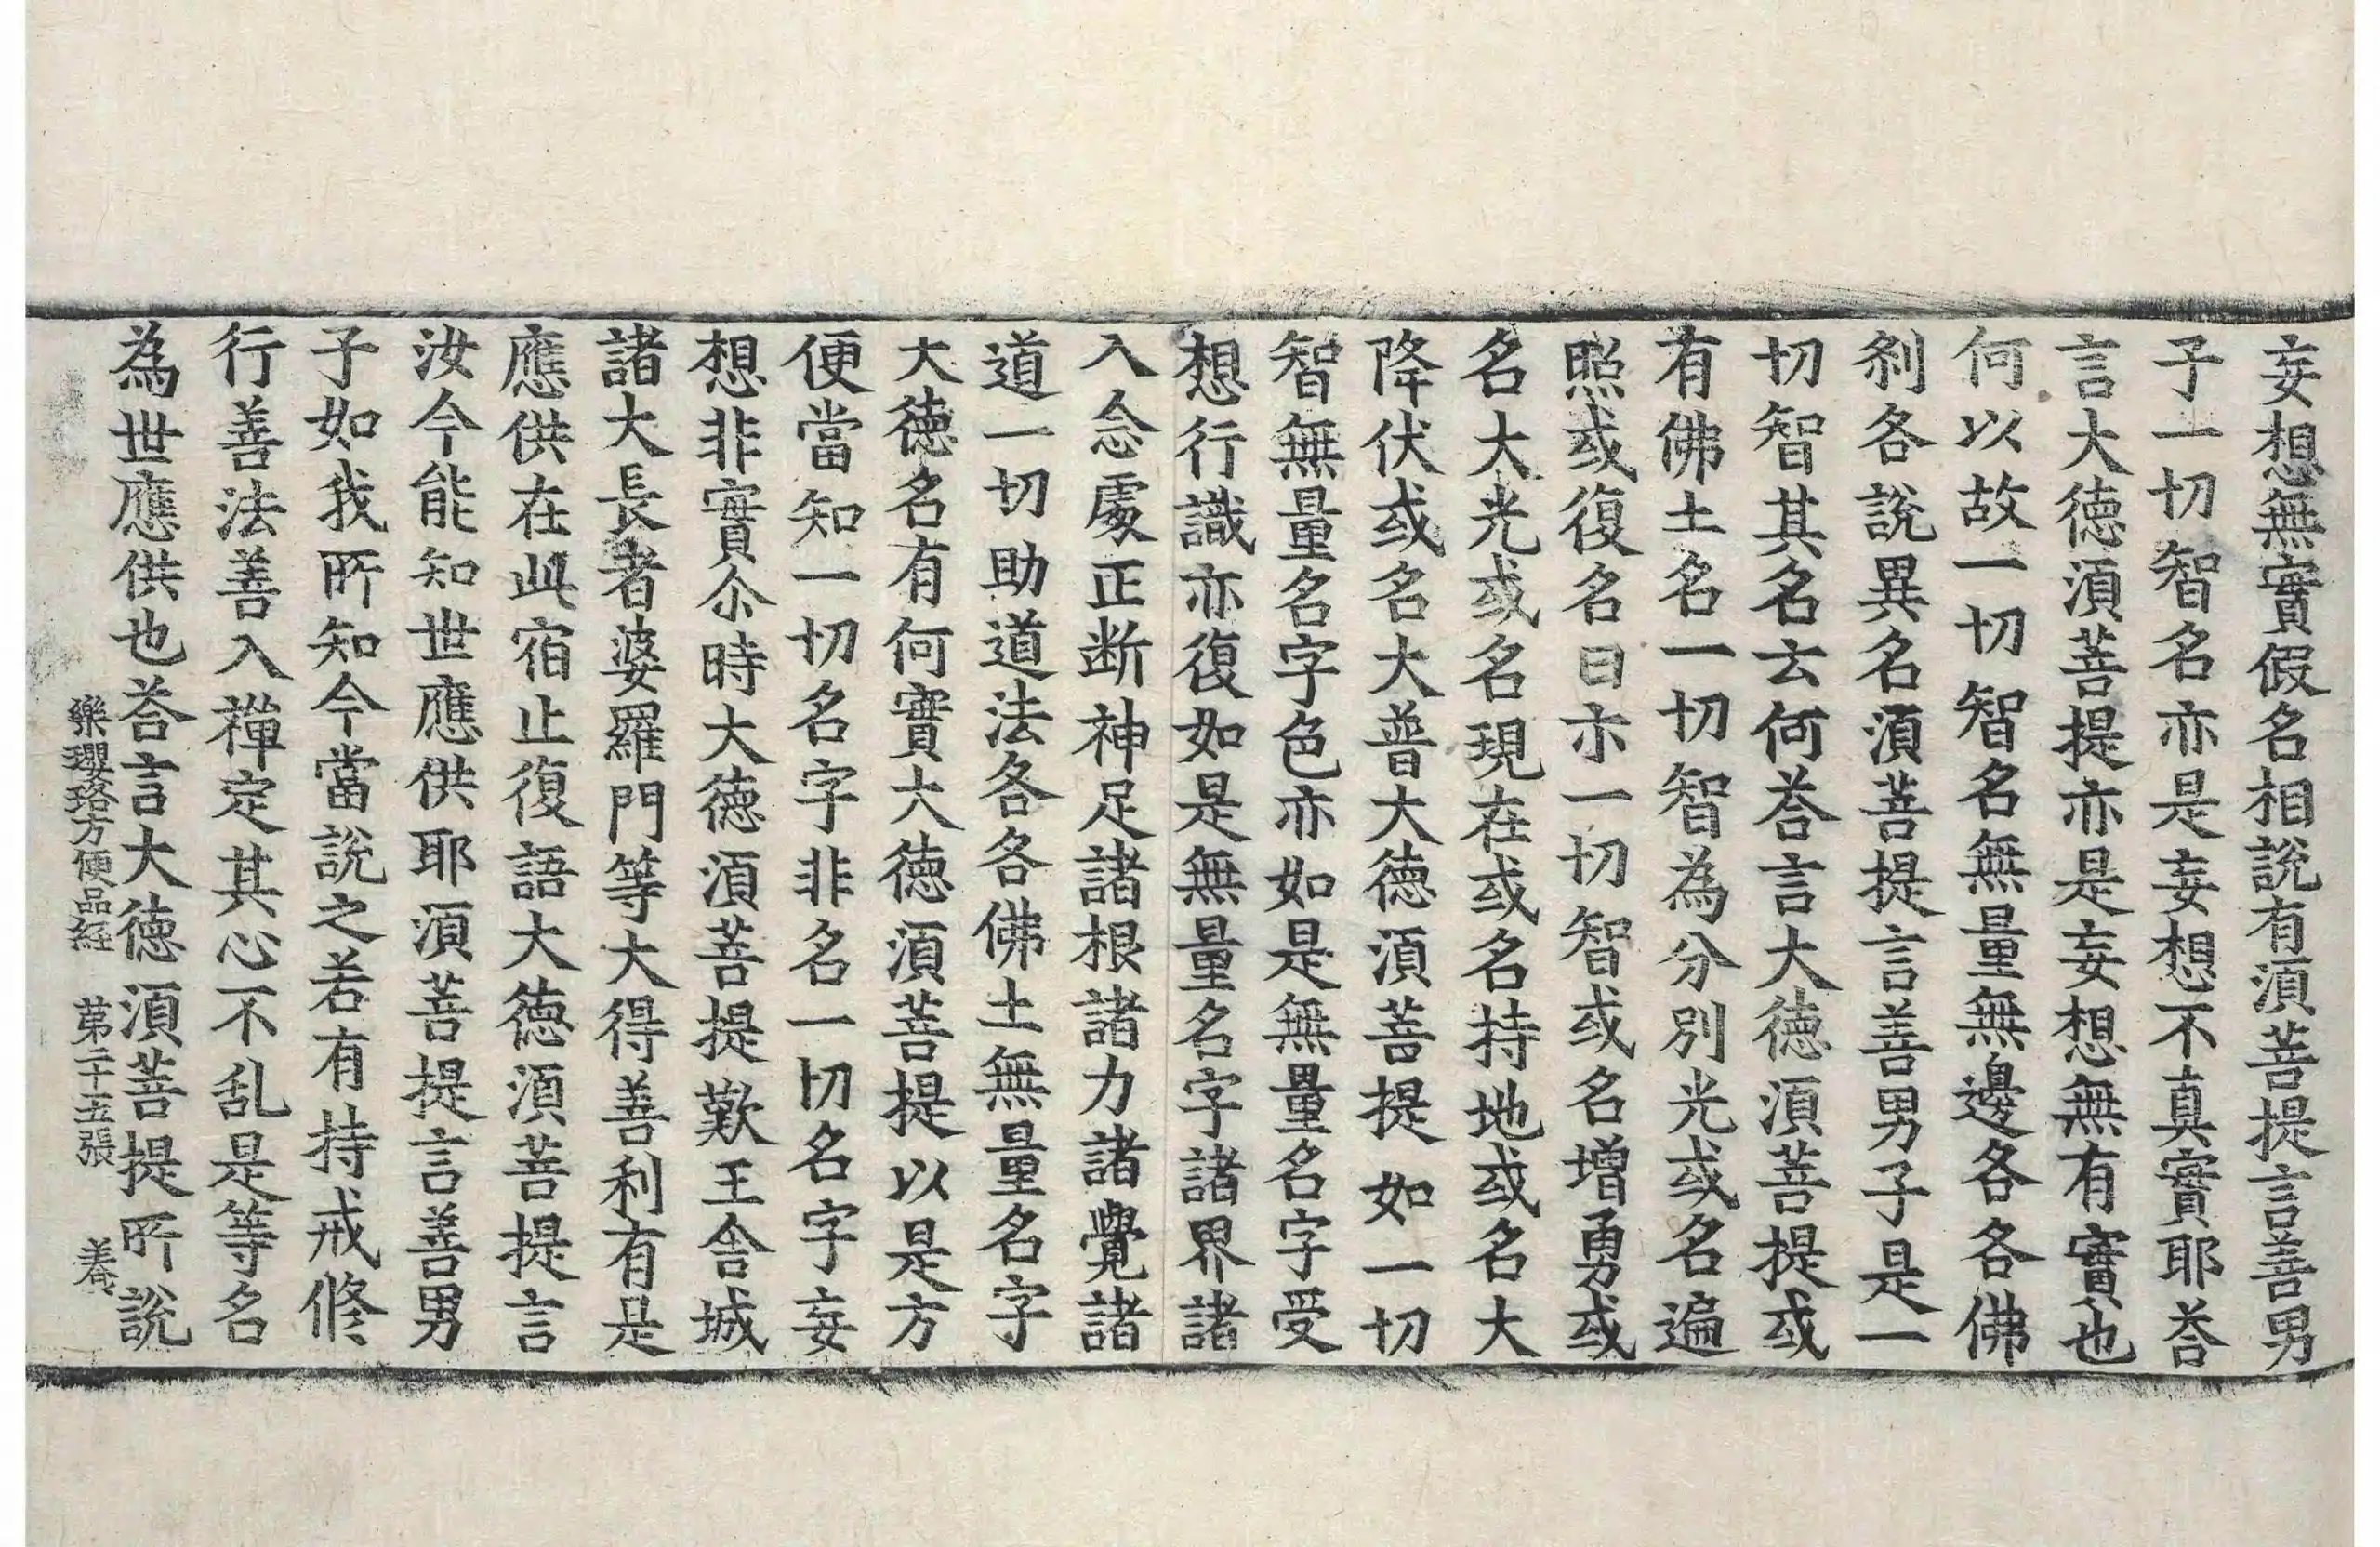 妄想無實假名相說有湏菩提言善男
子一切智名亦是妄想不真實耶荅
言大德湏菩提亦是妄想無有實也
何以故一切智名無量無邊各各佛
剎各說異名湏菩提言善男子是一
切智其名云何荅言大德湏菩提或
有佛土名一切智為分別光或名遍
照或復名曰示一切智或名增勇或
名大光或名現在或名持地或名大
降伏或名大普大德湏菩提如一切
智無量名字色亦如是無量名字受
想行識亦復如是無量名字諸界諸
入念處正断神足諸根諸力諸覺諸
道一切助道法各各佛土無量名字
大德名有何實大德湏菩提以是方
便當知一切名字非名一切名字妄
想非實尒時大德湏菩提歎王舍城
諸大長者婆羅門等大得善利有是
應供在此宿止復語大德湏菩提言
汝今能知世應供耶湏菩提言善男
子如我所知今當說之若有持戒修
行善法善入禪定其心不乱是等名
為世應供也荅言大德湏菩提所說
樂瓔珞方便品經 苐二十五張